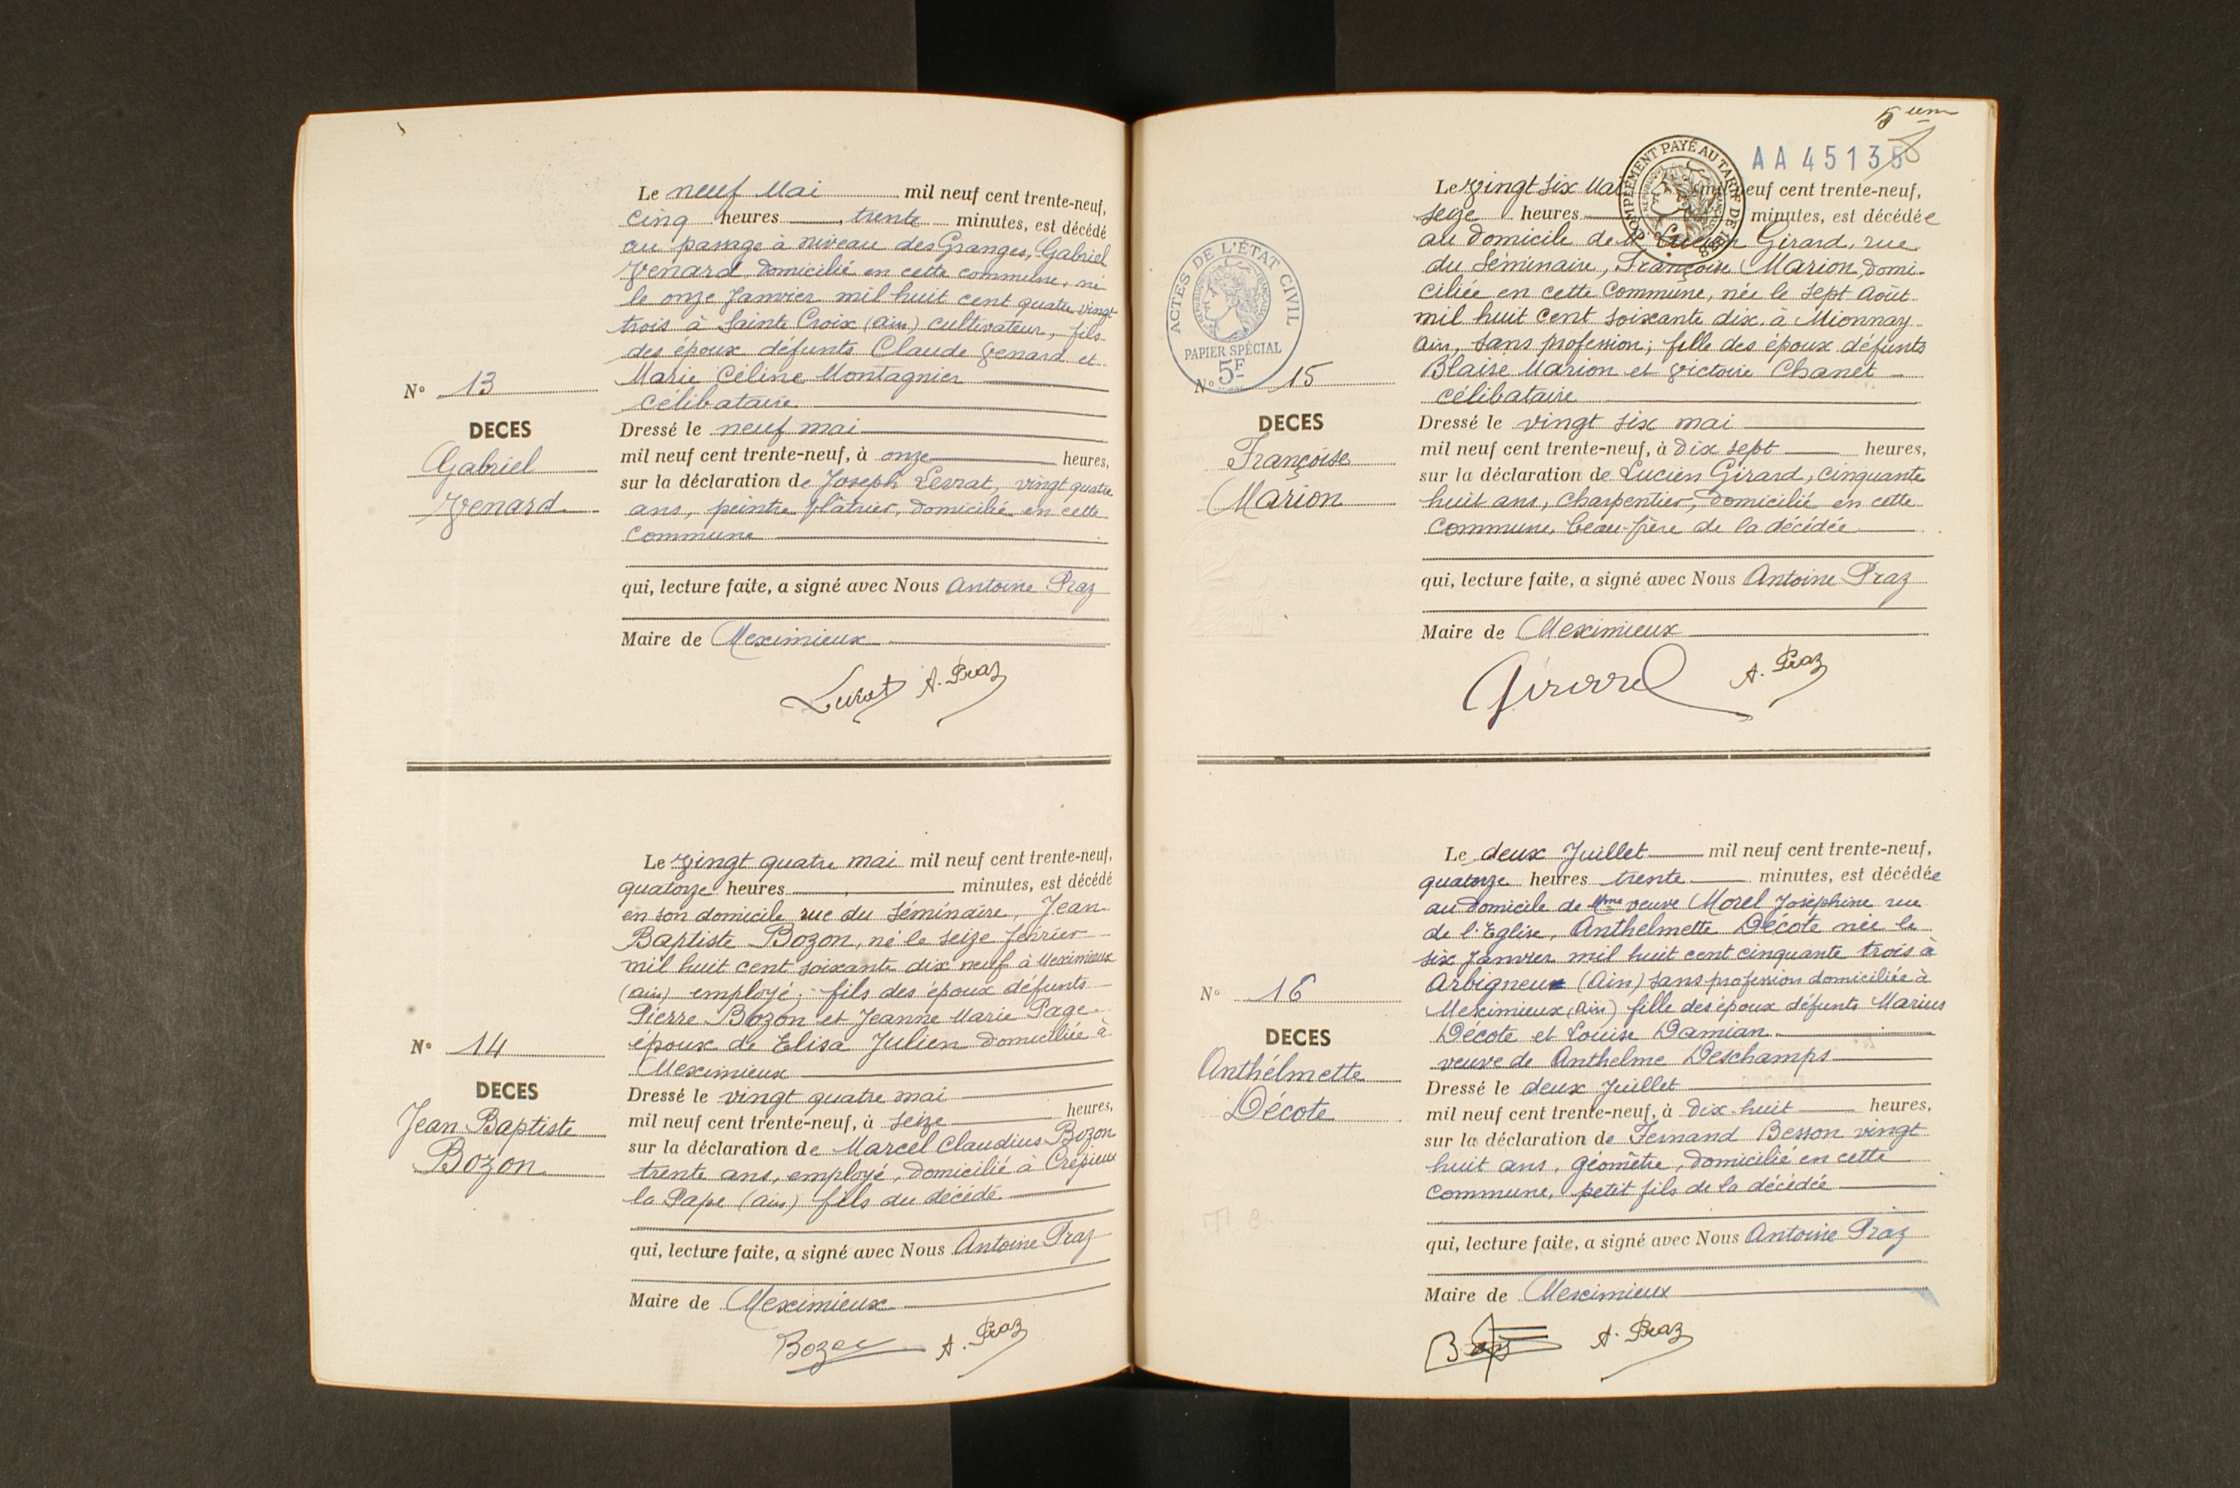 Le neuf Mai mil neuf cent trente-neuf,
cinq heures trente minutes, est décédé
au passage à niveau des Granges, Gabriel
Venard domicilié en cette commune, né
le onze Janvier mil huit cent quatre vingt
trois à Sainte Croix (Ain) cultivateur, fils
des époux défunts Claude Venard et
Marie Céline Montagnier
célibataire
N° 13
DECES
Gabriel
Venard
Dressé le neuf mai
mil neuf cent trente-neuf, à onze heures,
sur la déclaration de Joseph Levrat, vingt quatre
ans, peintre plâtrier, domicilié en cette
commune
qui, lecture faite, a signé avec Nous Antoine Praz
Maire de Meximieux
Levrat A. Praz
Le vingt quatre mai mil neuf cent trente-neuf,
quatorze heures minutes, est décédé
en son domicile rue du Séminaire, Jean
Baptiste Bozon, né le seize février
mil huit cent soixante dix neuf à Meximieux
(Ain) employé; fils des époux défunts
Pierre Bozon et Jeanne Marie Page.
époux de Elisa Julien domiciliée à
Meximieux
N° 14
DECES
Jean Baptiste
Bozon
Dressé le vingt quatre mai
mil neuf cent trente-neuf, à seize heures,
sur la déclaration de Marcel Claudius Bozon
trente ans, employé, domicilié à Crépieux
la Pape (Ain) fils du décédé
qui, lecture faite, a signé avec Nous Antoine Praz
Maire de Meximieux
Bozon A. Praz
5 iem
AA 45135
COMPLEMENT PAYÉ AU TARIF DE 1938
ACTES DE L'ÉTAT CIVIL
PAPIER SPÉCIAL
5F
Le vingt six Mai mil neuf cent trente-neuf,
seize heures minutes, est décédée
au domicile de Lucien Girard, rue
du Séminaire, Françoise Marion, domi-
ciliée en cette commune, née le sept Août
mil huit cent soixante dix à Mionnay
Ain, sans profession; fille des époux défunts
Blaise Marion et Victoire Chanet
célibataire
N° 15
DECES
Françoise
Marion
Dressé le vingt six mai
mil neuf cent trente-neuf, à dix sept heures,
sur la déclaration de Lucien Girard, cinquante
huit ans, charpentier, domicilié en cette
commune, beau-frère de la décédée
qui, lecture faite, a signé avec Nous Antoine Praz
Maire de Meximieux
Girard A. Praz
Le deux Juillet mil neuf cent trente-neuf,
quatorze heures trente minutes, est décédée
au domicile de Mme veuve Morel Joséphine rue
de l'Eglise, Anthelmette Décote née le
six Janvier mil huit cent cinquante trois à
Arbigneu (Ain) sans profession domiciliée à
Meximieux (Ain) fille des époux défunts Marius
Décote et Louise Damian
veuve de Anthelme Deschamps
N° 16
DECES
Anthélmette
Décote
Dressé le deux Juillet
mil neuf cent trente-neuf, à dix-huit heures,
sur la déclaration de Fernand Besson vingt
huit ans, géomètre, domicilié en cette
commune, petit fils de la décédée
qui, lecture faite, a signé avec Nous Antoine Praz
Maire de Meximieux
A. Praz